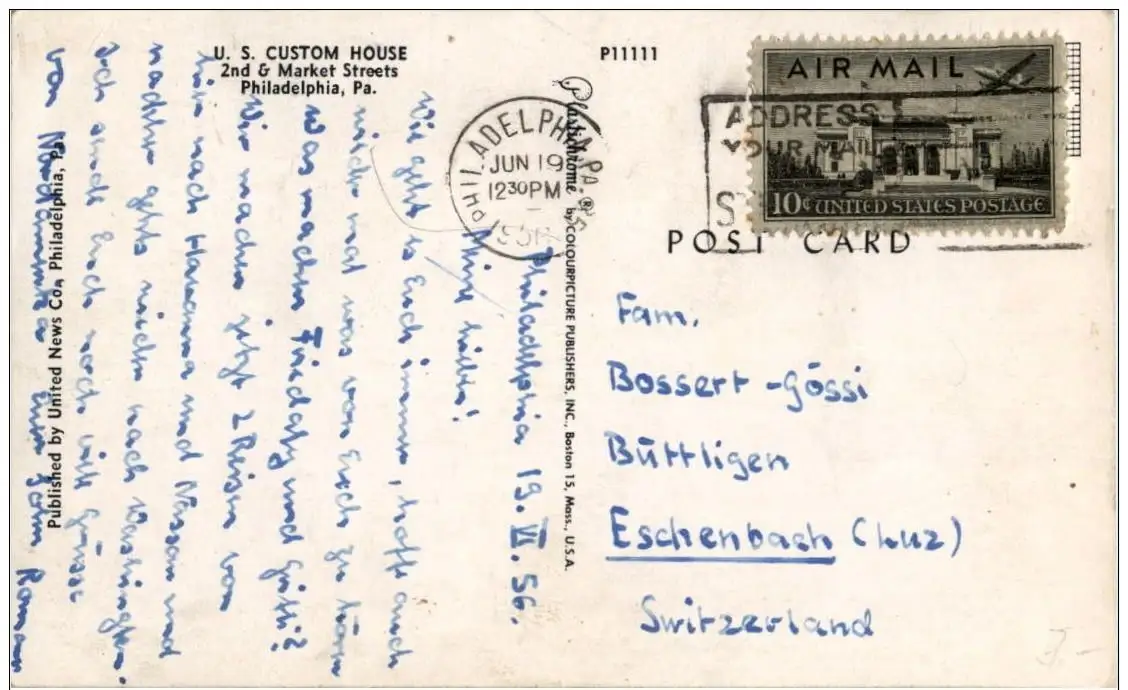 U. S. CUSTOM HOUSE
2nd & Market Streets
Philadelphia, Pa.
P11111
AIR MAIL
10¢ UNITED STATES POSTAGE
ADDRESS
YOUR MAIL
PHILADELPHIA, PA.
JUN 19
12 30 PM
POST CARD
Plastichrome ® by COLOURPICTURE PUBLISHERS, INC., Boston 15, Mass., U.S.A.
Published by United News Co., Philadelphia, Pa.
Philadelphia 19. VI. 56.
Meine Lieben!
Wie geht es Euch immer, hoffe auch
wieder mal was von Euch zu hören
Was machen Friedely und Götti?
Wir machen jetzt 2 Reisen von
hier nach Havanna und Nassau und
nachher gehts wieder nach Washington.
Ich sende Euch noch viele Grüsse
von Nordamerika Euer Sohn Roman
Fam.
Bossert-Gössi
Büttligen
Eschenbach (Luz)
Switzerland